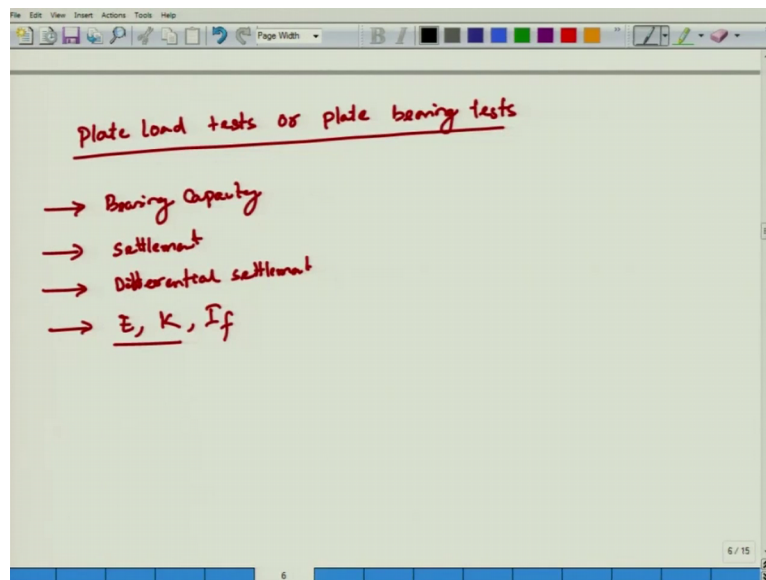 File Edit View Insert Actions Tools Help
Page Width
B I
Plate Load tests or plate bearing tests
→ Bearing Capacity
→ Settlement
→ Differential settlement
→ E, K, If
6 / 15
6